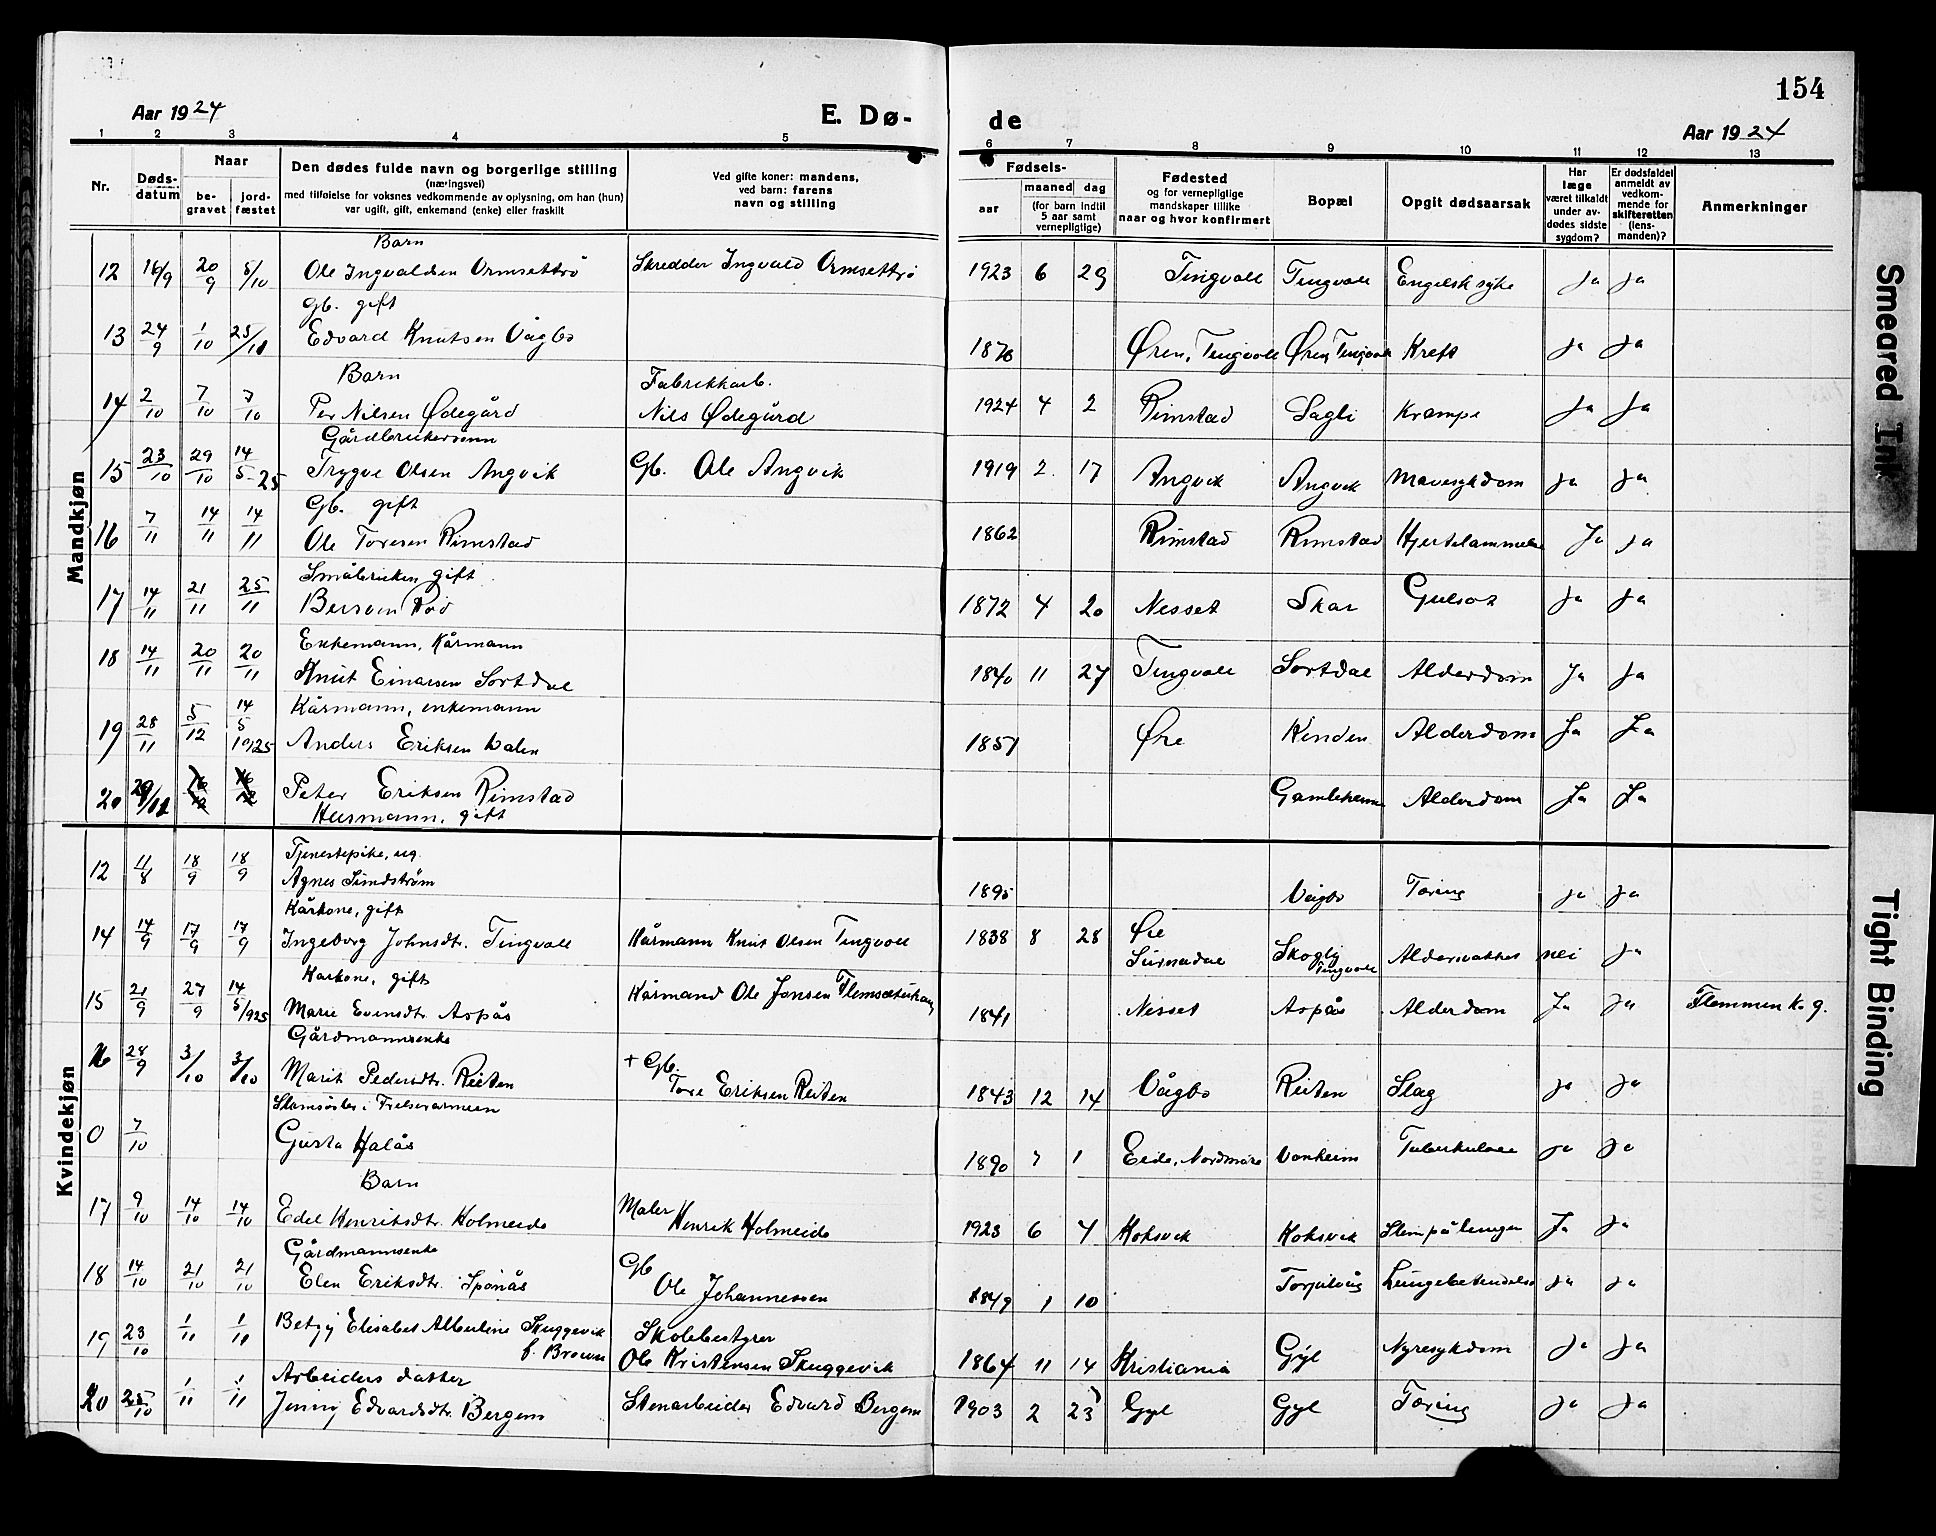 154
Aar 1924 E. Dø- de Aar 1924
1 2 3 4 5 6 7 8 9 10 11 12 13
Nr. Døds-datum Naar be-gravet jord-fæstet Den dødes fulde navn og borgerlige stilling (næringsvei) med tilføielse for voksnes vedkommende av oplysning, om han (hun) var ugift, gift, enkemand (enke) eller fraskilt Ved gifte koner: mandens, ved barn: farens navn og stilling Fødsels- aar maaned dag (for barn indtil 5 aar samt vernepligtige) Fødested og for vernepligtige mandskaper tillike naar og hvor konfirmert Bopæl Opgit dødsaarsak Har læge været tilkaldt under av-dødes sidste sygdom? Er dødsfaldet anmeldt av vedkom-mende for skifteretten (lens-manden)? Anmerkninger
Mandkjøn
Barn
12 16/9 20/9 5/10 Ole Ingvaldsen Ormsettrø Skredder Ingvald Ormsettrø 1923 6 29 Tingvoll Tingvoll Engelsk syke Ja Ja
Gb. gift
13 24/9 1/10 25/10 Edvard Knutsen Vågbø 1876 Øren, Tingvoll Øren, Tingvoll Kreft Ja Ja
Barn Fabrikkarb.
14 2/10 7/10 7/10 Per Nilsen Ødegård Nils Ødegård 1924 4 2 Rimstad Sagli Krampe Ja Ja
Gårdbrukersønn
15 23/10 29/10 14/5-25 Trygve Olsen Angvik Gb. Ole Angvik 1919 2 17 Angvik Angvik Mavesykdom Ja Ja
Gb. gift
16 7/11 14/11 14/11 Ole Toresen Rimstad 1862 Rimstad Rimstad Hjertelammelse Ja Ja
Småbruker, gift
17 14/11 21/11 25/11 Bersvein Rød 1872 4 20 Nesset Skar Gulsot Ja Ja
Enkemann, Kårmann
18 14/11 20/11 20/11 Knut Einarsen Sortdal 1840 11 27 Tingvoll Sortdal Alderdom Ja Ja
Kårmann, enkemann
19 28/11 5/12 14/5 1925 Anders Eriksen Walen 1851 Øre Kinden Alderdom Ja Ja
20 29/11 16/12 16/12 Peter Eriksen Rimstad Gamleheimen Alderdom Ja Ja
Husmann, gift
Kvindekjøn
Tjenestepike, ug.
12 11/8 18/9 18/9 Agnes Sundstrøm 1895 Vågbø Tæring Ja Ja
Kårkone, gift
14 14/9 17/9 17/9 Ingeborg Johnsdtr. Tingvoll Kårmann Knut Olsen Tingvoll 1838 8 28 Øre Surnadal Skogly Tingvoll nei Ja
Karkone, gift
15 21/9 27/9 14/5/925 Marie Evensdtr. Aspås Kårmand Ole Jonsen 1841 Nesset Aspås Alderdom Ja Ja Flemmen k. g.
Gårdmannsenke
16 28/9 3/10 3/10 Marit Pedersdtr. Reiten + Gb. Tore Eriksen Reiten 1843 12 14 Vågbø Reiten Slag Ja Ja
i Frelsesarmeen
0 7/10 Gusta Halås 1890 7 1 Eide, Nordmøre Vonheim Tuberkulose Ja Ja
Barn
17 9/10 14/10 14/10 Edel Henriksdtr. Holmeide Maler Henrik Holmeide 1923 6 4 Koksvik Koksvik Slem på lungen Ja Ja
Gårdmannsenke
18 14/10 21/10 21/10 Elen Eriksdtr. Spånås Gb Ole Johannessen 1849 1 10 Torjulvåg Lungebetendelse Ja Ja
19 23/10 1/11 1/11 Betzy Elisabet Albertine Skuggevik f. Brown Skolebestyrer Ole Kristensen Skuggevik 1864 11 14 Kristiania Gyl Nyresykdom Ja Ja
Arbeiders datter
20 25/10 1/11 1/11 Jenny Edvardsdtr. Bergem Stenarbeider Edvard Bergem 1903 2 23 Gyl Gyl Tæring Ja Ja
Smeared Ink
Tight Binding